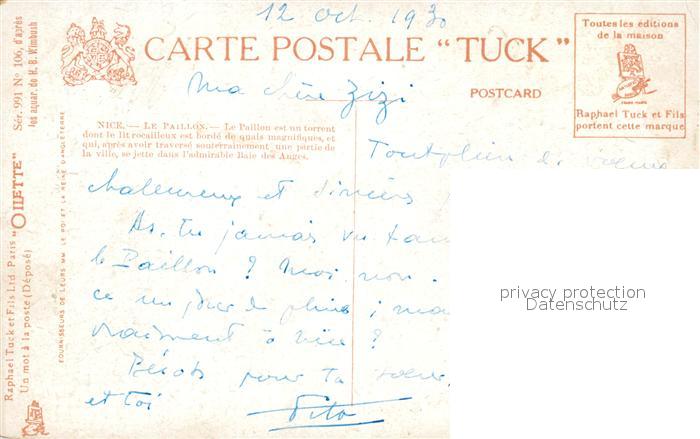 12 Oct. 1930
CARTE POSTALE “TUCK”
POSTCARD
Toutes les éditions
de la maison
Raphael Tuck et Fils
portent cette marque
Ma chère Zizi
NICE. — LE PAILLON. — Le Paillon est un torrent
dont le lit rocailleux est bordé de quais magnifiques, et
qui, après avoir traversé souterrainement une partie de
la ville, se jette dans l'admirable Baie des Anges.
Tout plein de vœux
chaleureux et sincères
As-tu jamais vu
le Paillon ? Moi non.
ce un jour de pluie ;
vraiment à Nice ?
pour ta sœur
et toi
Tito
Sér. 991 No 106, d'après
les aquar. de H. B. Wimbush
Raphael Tuck et Fils Ltd Paris “OILETTE”
Un mot à la poste (Déposé)
FOURNISSEURS DE LEURS MM. LE ROI ET LA REINE D'ANGLETERRE
privacy protection
Datenschutz